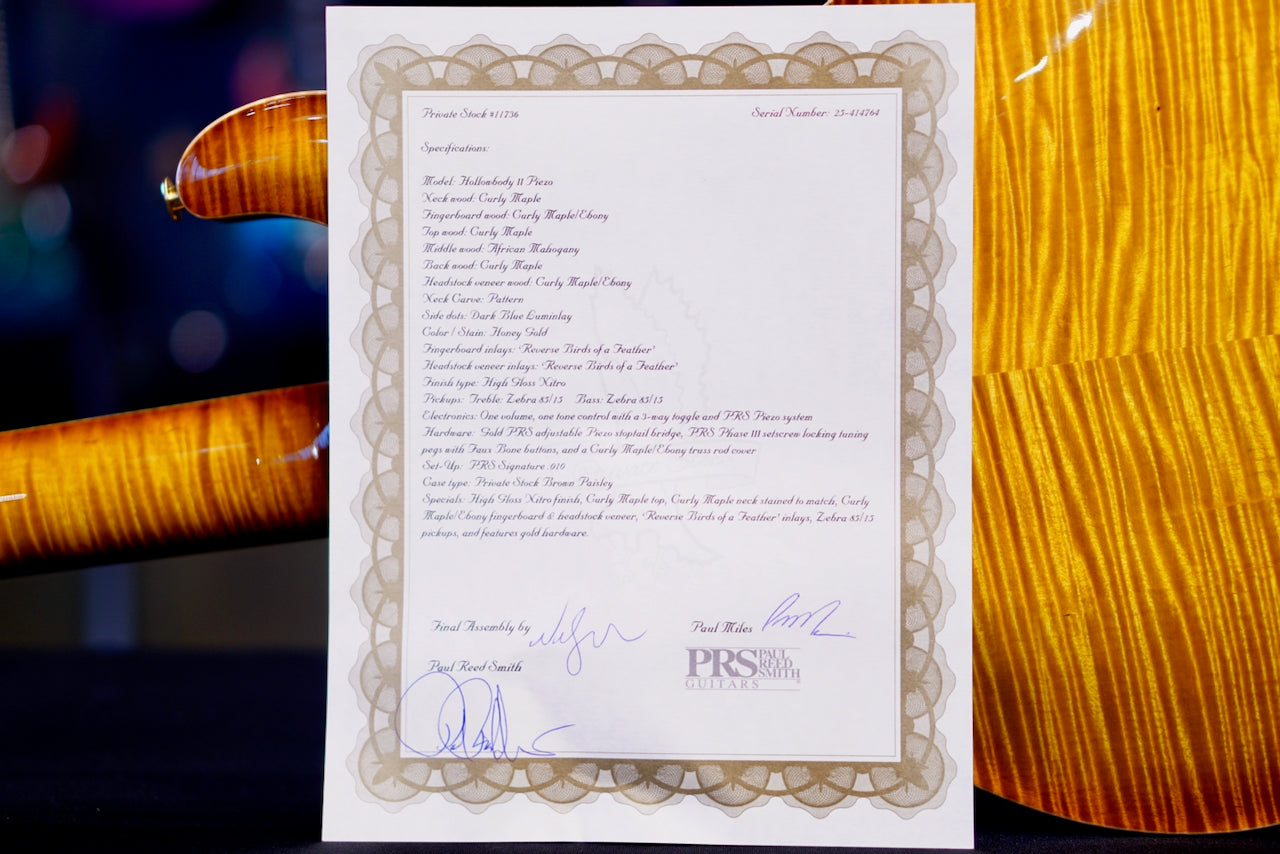 Private Stock #11736 Serial Number: 25-414764
Specifications:
Model: Hollowbody II Piezo
Neck wood: Curly Maple
Fingerboard wood: Curly Maple/Ebony
Top wood: Curly Maple
Middle wood: African Mahogany
Back wood: Curly Maple
Headstock veneer wood: Curly Maple/Ebony
Neck Carve: Pattern
Side dots: Dark Blue Luminlay
Color / Stain: Honey Gold
Fingerboard inlays: 'Reverse Birds of a Feather'
Headstock veneer inlays: 'Reverse Birds of a Feather'
Finish type: High Gloss Nitro
Pickups: Treble: Zebra 85/15 Bass: Zebra 85/15
Electronics: One volume, one tone control with a 3-way toggle and PRS Piezo system
Hardware: Gold PRS adjustable Piezo stoptail bridge, PRS Phase III setscrew locking tuning
pegs with Faux Bone buttons, and a Curly Maple/Ebony truss rod cover
Set-Up: PRS Signature .010
Case type: Private Stock Brown Paisley
Specials: High Gloss Nitro finish, Curly Maple top, Curly Maple neck stained to match, Curly
Maple/Ebony fingerboard & headstock veneer, 'Reverse Birds of a Feather' inlays, Zebra 85/15
pickups, and features gold hardware.
Final Assembly by
Paul Miles
Paul Reed Smith
PRS PAUL REED SMITH
GUITARS